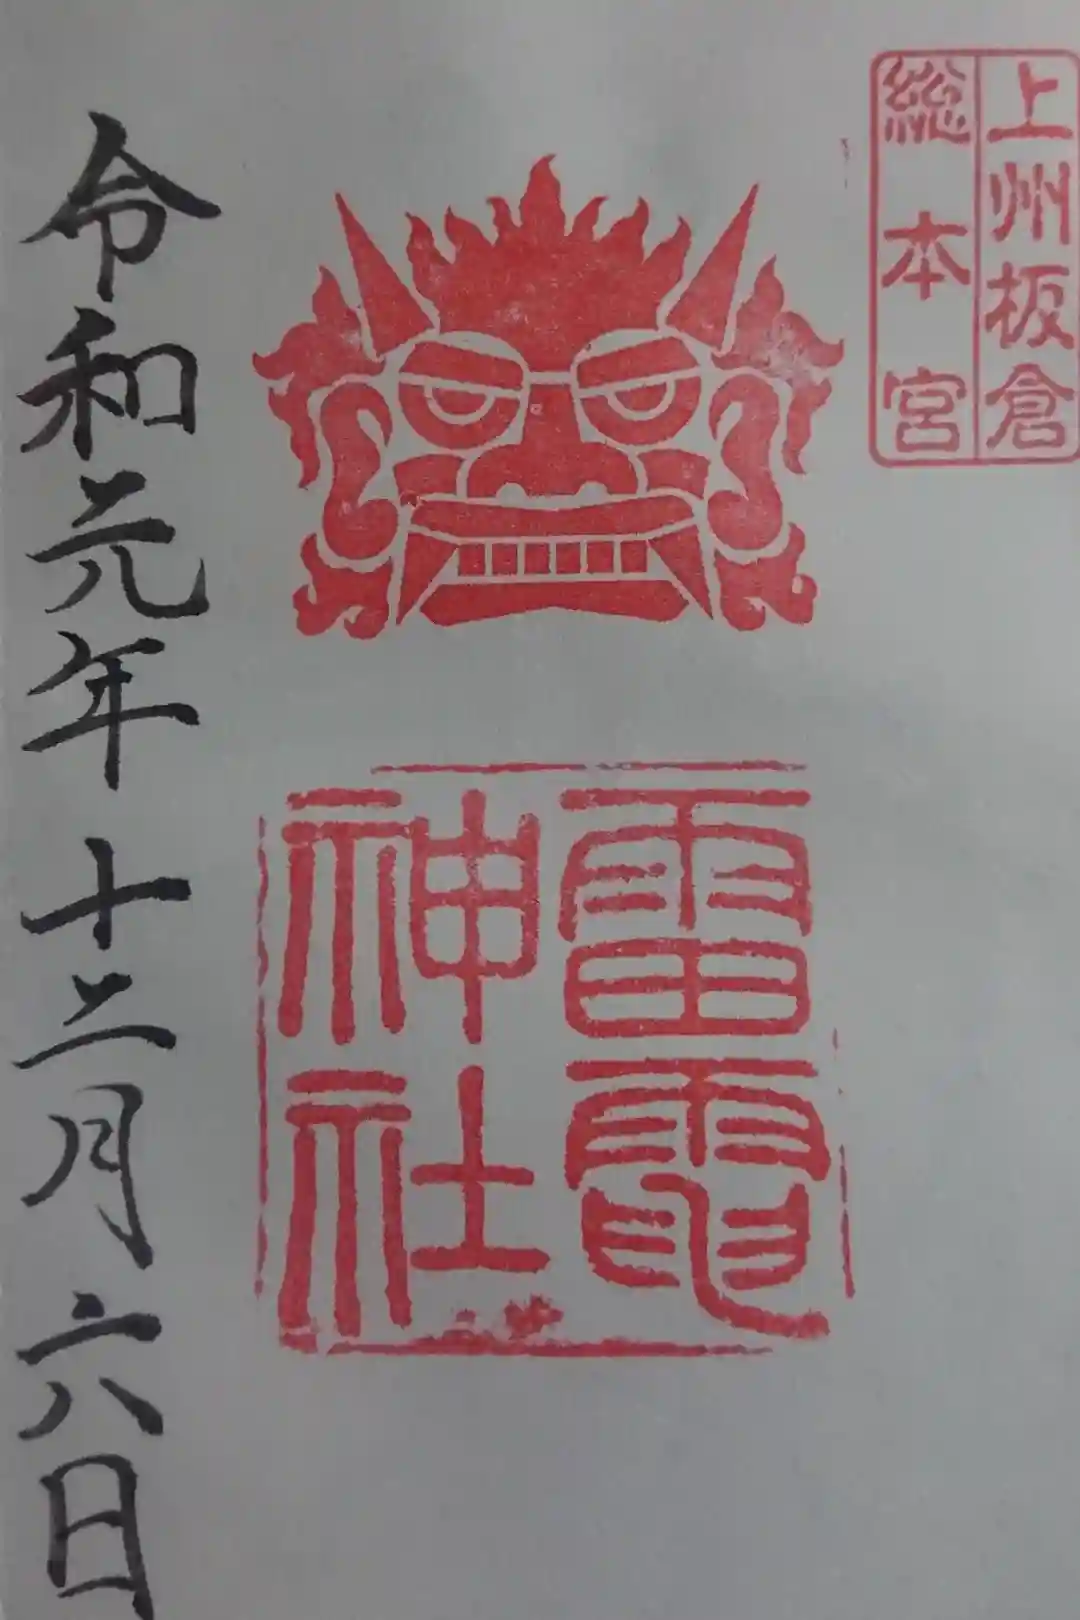 上州板倉
総本宮
雷電
神社
令和元年十二月六日